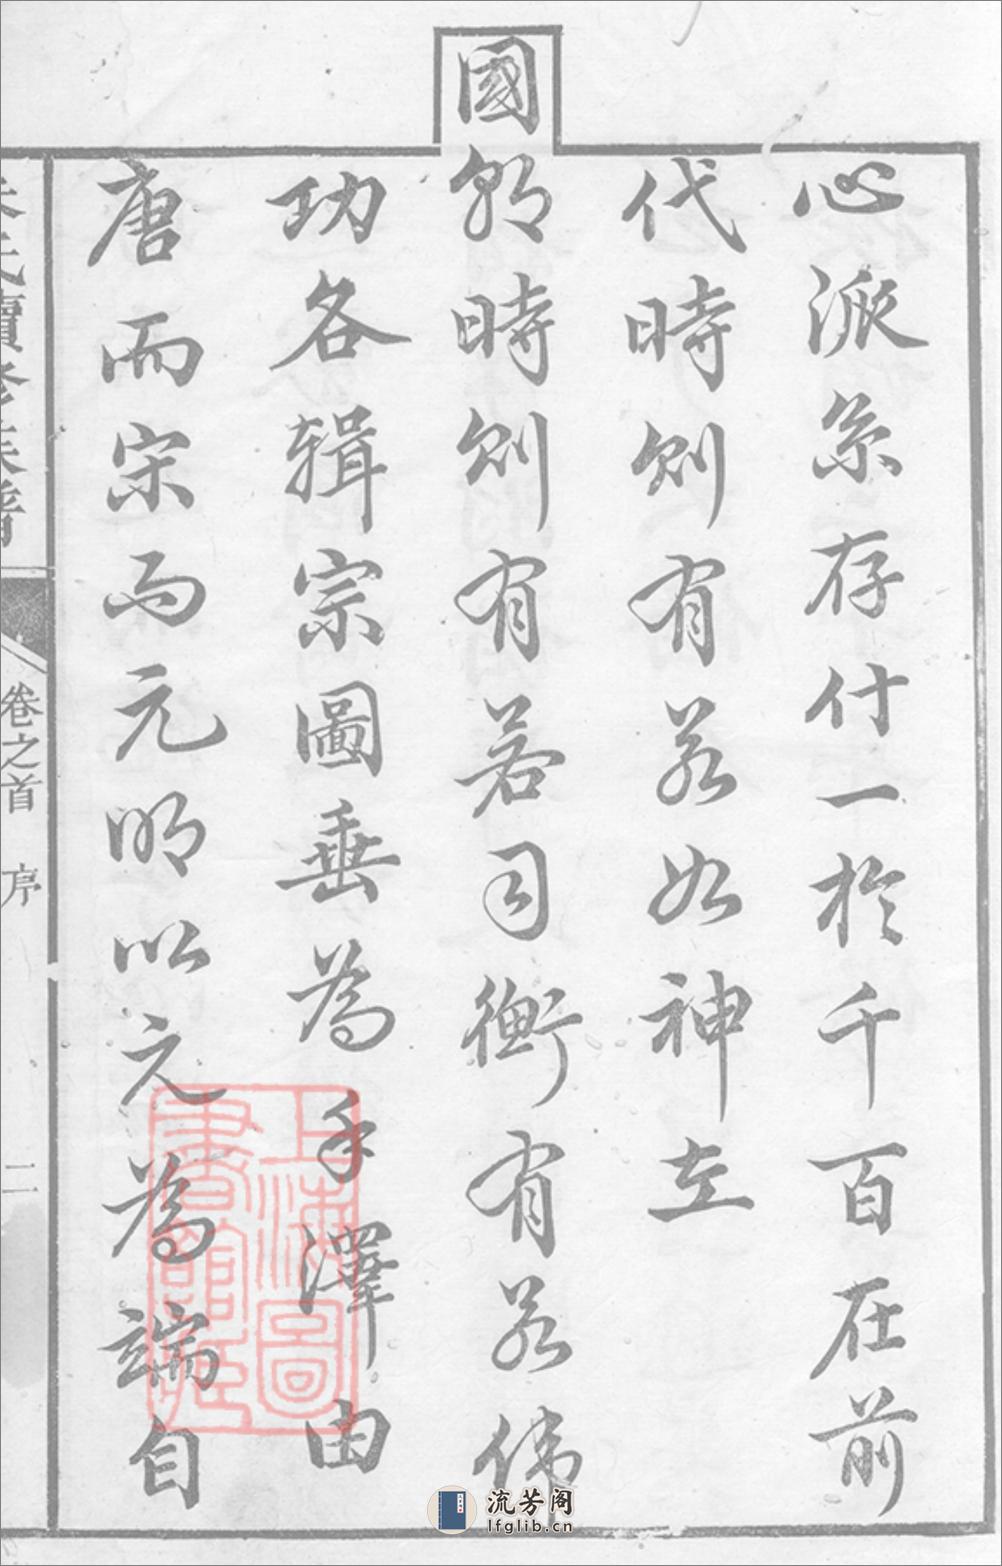 心派系存付一於千百在前
代時則有若如神左
國朝時則有若司衡有若偉
功各輯宗圖垂為手澤由
唐而宋而元明以之為端自
氏續修族譜
卷之首 序 二
上海圖書館藏
流芳阁
lfglib.cn